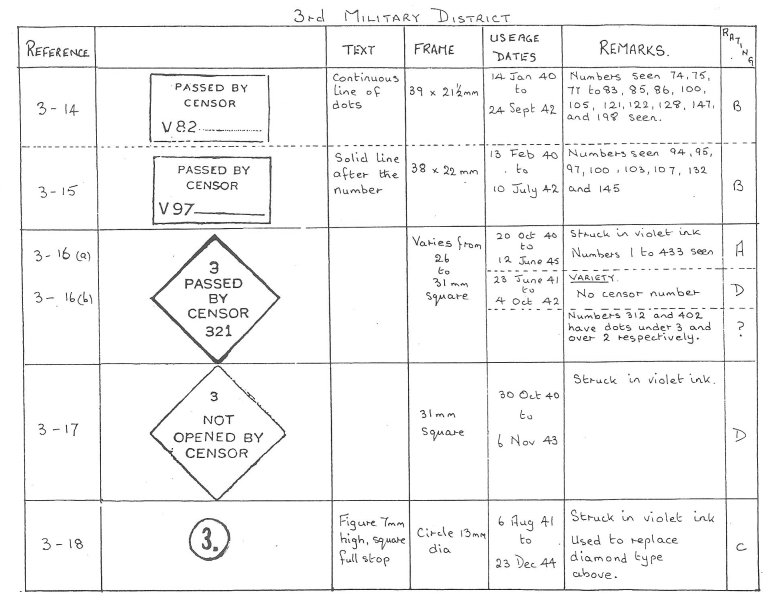 3rd MILITARY DISTRICT
REFERENCE
TEXT
FRAME
USEAGE
DATES
REMARKS.
RATING
3-14
PASSED BY
CENSOR
V 82
Continuous
line of
dots
39 x 21½mm
14 Jan 40
to
24 Sept 42
Numbers seen 74, 75,
77 to 83, 85, 86, 100,
105, 121, 122, 128, 147,
and 198 seen.
B
3-15
PASSED BY
CENSOR
V 97
Solid line
after the
number
38 x 22 mm
13 Feb 40
to
10 July 42
Numbers seen 94, 95,
97, 100, 103, 107, 132
and 145
B
3-16 (a)
3-16 (b)
3
PASSED
BY
CENSOR
321
Varies from
26
to
31 mm
Square
20 Oct 40
to
12 June 45
Struck in violet ink
Numbers 1 to 433 seen
A
23 June 41
to
4 Oct 42
VARIETY.
No censor number
D
Numbers 312 and 402
have dots under 3 and
over 2 respectively.
?
3-17
3
NOT
OPENED BY
CENSOR
31mm
Square
30 Oct 40
to
6 Nov 43
Struck in violet ink.
D
3-18
3.
Figure 7mm
high, square
full stop
Circle 13mm
dia
6 Aug 41
to
23 Dec 44
Struck in violet ink
Used to replace
diamond type
above.
C